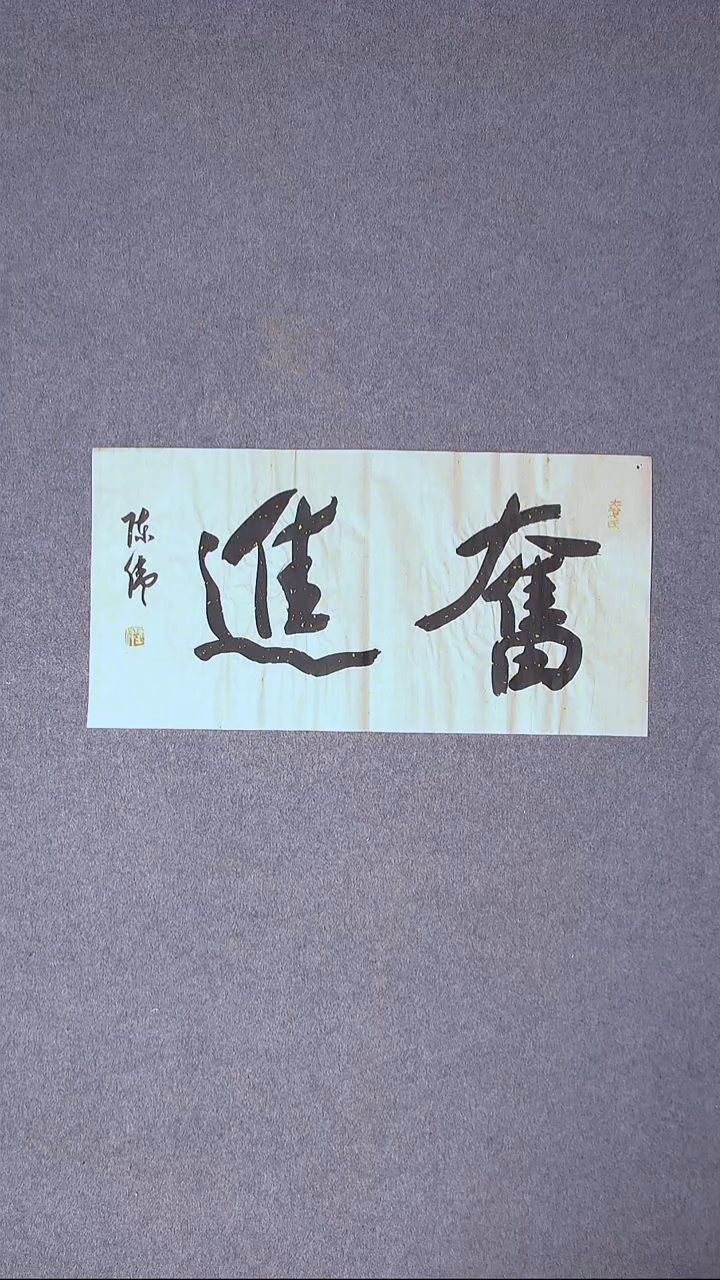 奮進
陈伟